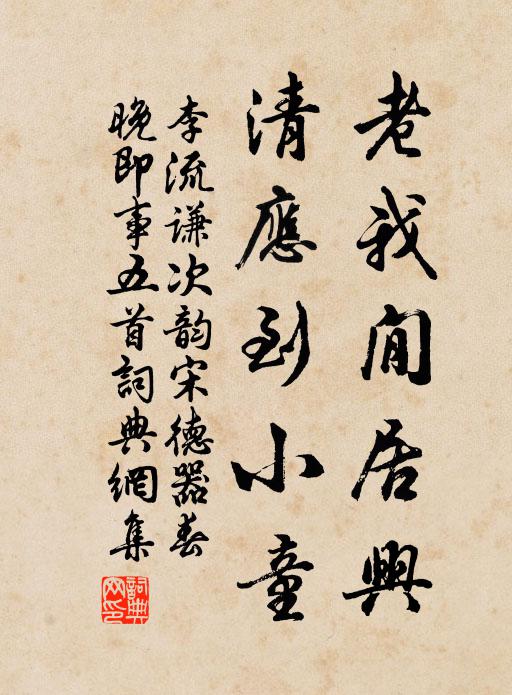 老我閒居興
清應到小童
李流謙次韵宋德器春
晚即事五首詞典網集
詞典
网印